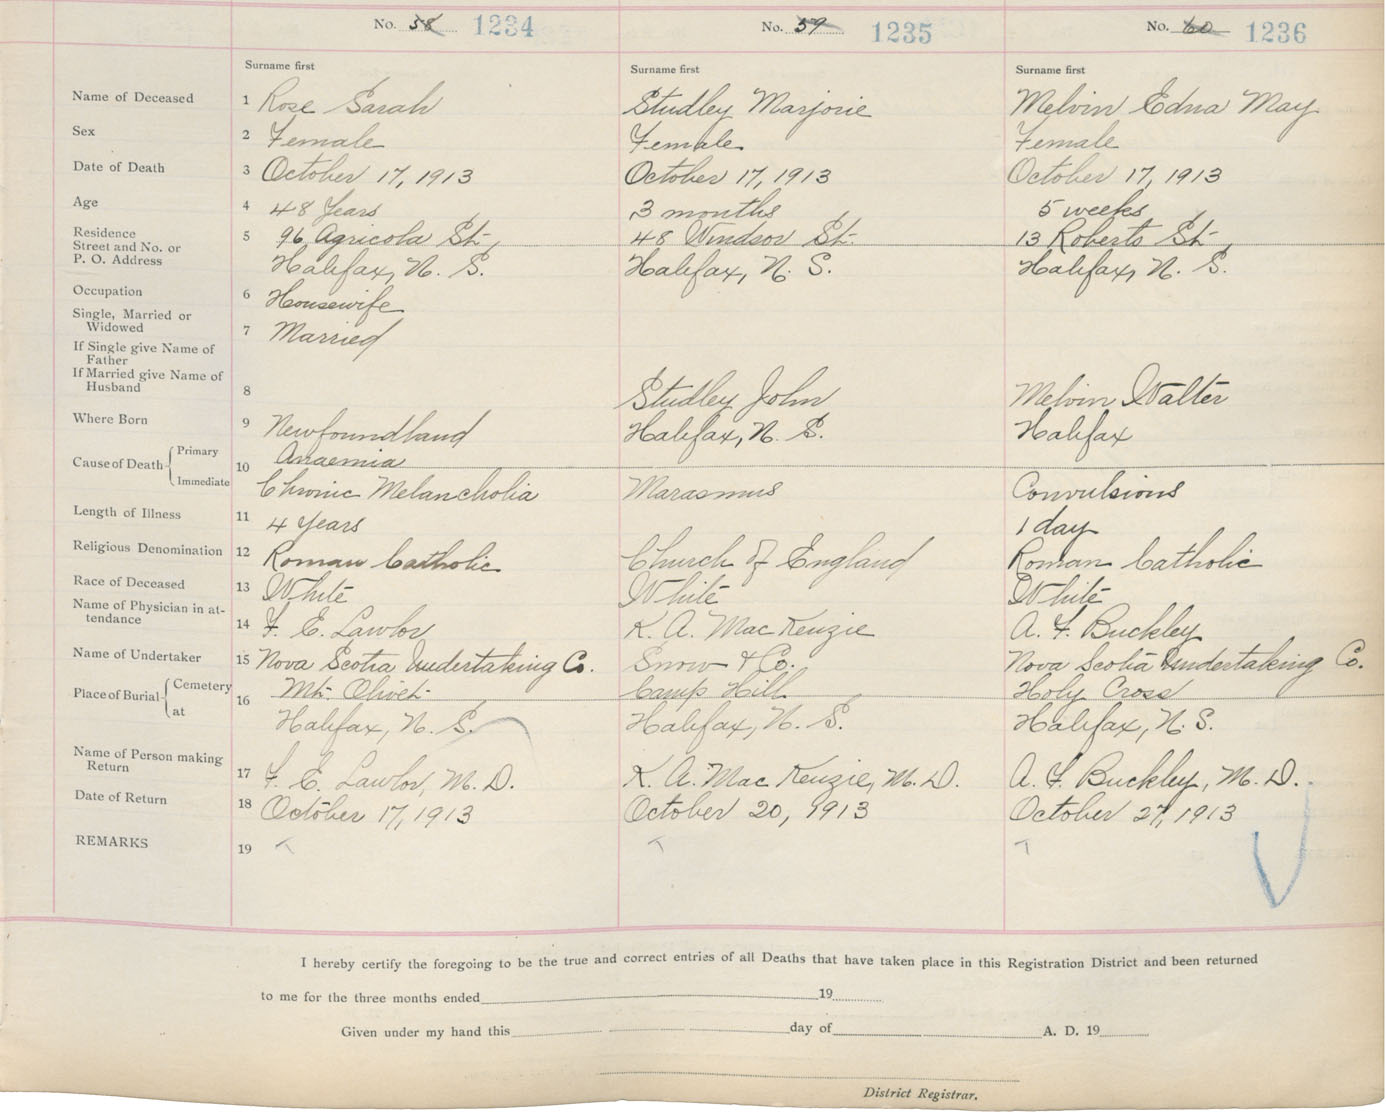 No. 58 1234 No. 59 1235 No. 60 1236
Surname first Surname first Surname first
Name of Deceased 1 Rose Sarah Studley Marjorie Melvin Edna May
Sex 2 Female Female Female
Date of Death 3 October 17, 1913 October 17, 1913 October 17, 1913
Age 4 48 Years 3 months 5 weeks
Residence 5 96 Agricola St., 48 Windsor St. 13 Roberts St.,
Street and No. or
P. O. Address Halifax, N. S. Halifax, N. S. Halifax, N. S.
Occupation 6 Housewife
Single, Married or
Widowed 7 Married
If Single give Name of
Father
If Married give Name of
Husband 8 Studley John Melvin Walter
Where Born 9 Newfoundland Halifax, N. S. Halifax
Cause of Death Primary 10 Anaemia
Immediate Chronic Melancholia Marasmus Convulsions
Length of Illness 11 4 Years 1 day
Religious Denomination 12 Roman Catholic Church of England Roman Catholic
Race of Deceased 13 White White White
Name of Physician in at-
tendance 14 F. E. Lawlor K. A. MacKenzie A. F. Buckley
Name of Undertaker 15 Nova Scotia Undertaking Co. Snow & Co. Nova Scotia Undertaking Co.
Place of Burial Cemetery 16 Mt. Olivet Camp Hill Holy Cross
at Halifax, N. S. Halifax, N. S. Halifax, N. S.
Name of Person making
Return 17 F. E. Lawlor, M. D. K. A. MacKenzie, M. D. A. F. Buckley, M. D.
Date of Return 18 October 17, 1913 October 20, 1913 October 27, 1913
REMARKS 19
I hereby certify the foregoing to be the true and correct entries of all Deaths that have taken place in this Registration District and been returned
to me for the three months ended 19
Given under my hand this day of A. D. 19
District Registrar.